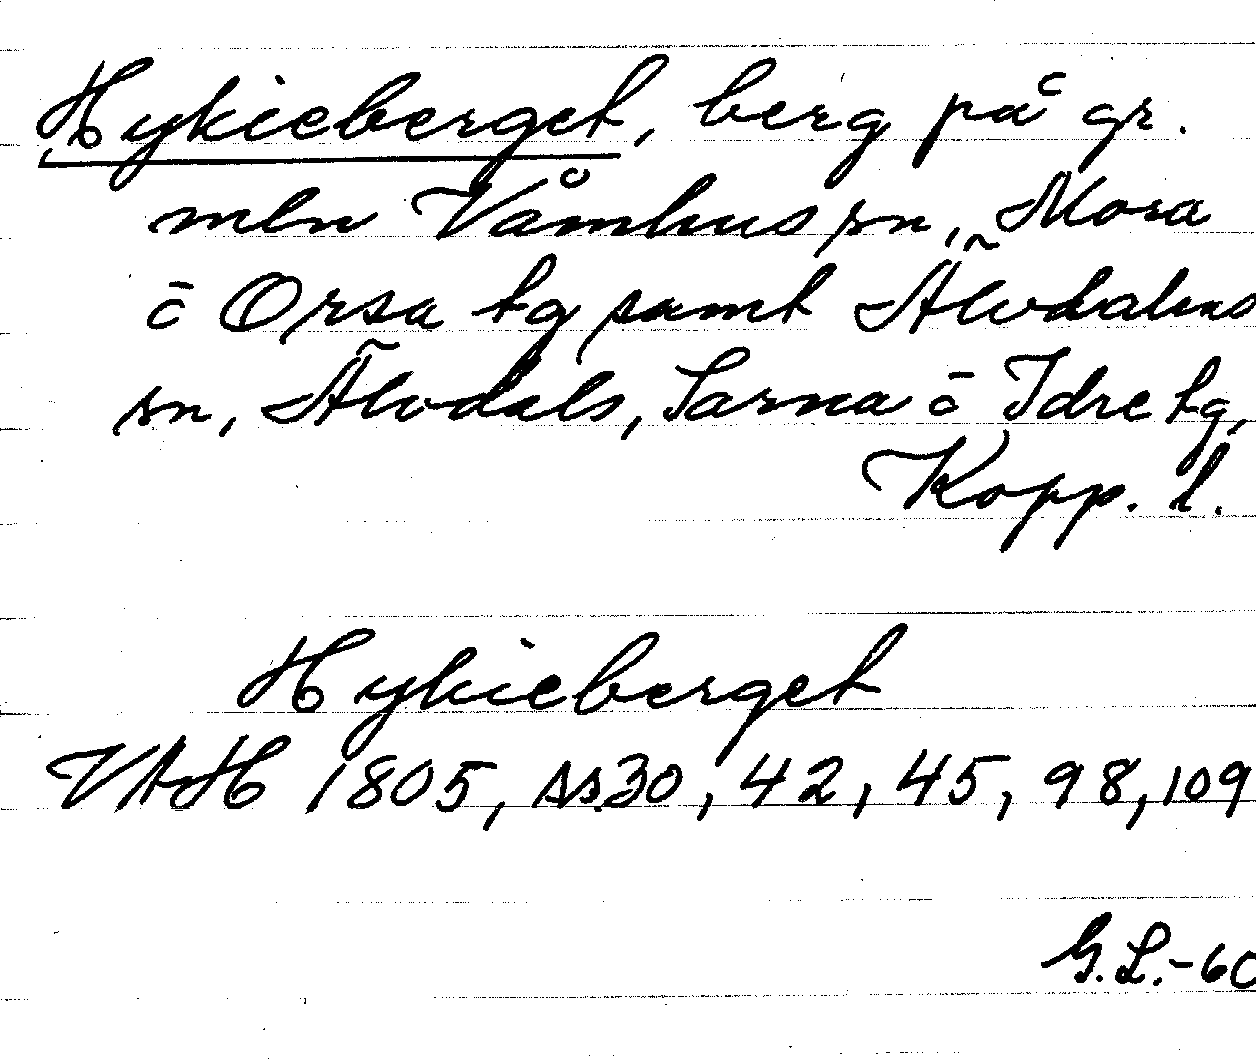 Hykieberget, berg på gr.
mln Våmhus sn, Mora
o Orsa tg samt Älvdalens
sn, Älvdals, Särna o Idre tg,
Kopp. l.
Hykieberget
VAH 1805, ss. 30, 42, 45, 98, 109
G.L.-60